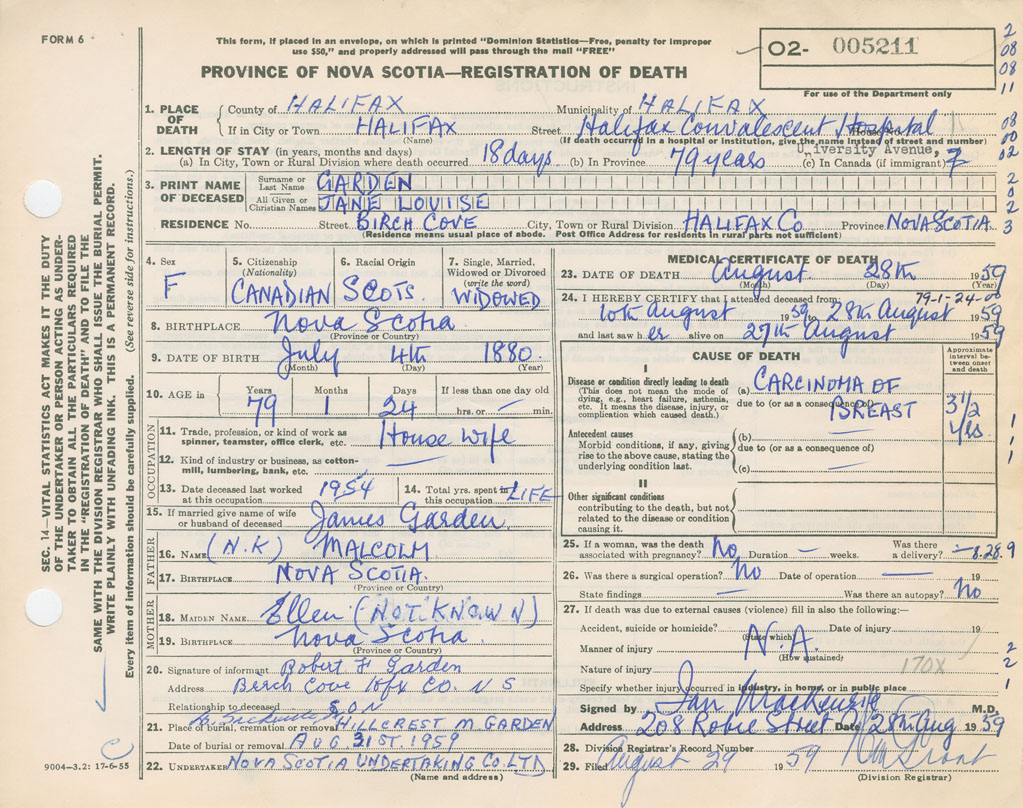 FORM 6
This form, if placed in an envelope, on which is printed "Dominion Statistics—Free, penalty for improper
use $50," and properly addressed will pass through the mail "FREE"
PROVINCE OF NOVA SCOTIA—REGISTRATION OF DEATH
02- 005211
For use of the Department only
2
08
08
11
08
00
02
2
0
2
3
SEC. 14—VITAL STATISTICS ACT MAKES IT THE DUTY
OF THE UNDERTAKER OR PERSON ACTING AS UNDER-
TAKER TO OBTAIN ALL THE PARTICULARS REQUIRED
IN THE "REGISTRATION OF DEATH" AND TO FILE THE
SAME WITH THE DIVISION REGISTRAR WHO SHALL ISSUE THE BURIAL PERMIT.
WRITE PLAINLY WITH UNFADING INK. THIS IS A PERMANENT RECORD.
Every item of information should be carefully supplied. (See reverse side for instructions.)
1. PLACE OF DEATH
County of HALIFAX Municipality of HALIFAX
If in City or Town HALIFAX Street Halifax Convalescent Hospital
(Name) (If death occurred in a hospital or institution, give the name instead of street and number)
University Avenue,
2. LENGTH OF STAY (in years, months and days)
(a) In City, Town or Rural Division where death occurred 18 days (b) In Province 79 years (c) In Canada (if immigrant)
3. PRINT NAME OF DECEASED
Surname or Last Name GARDEN
All Given or Christian Names JANE LOUISE
RESIDENCE No. Street BIRCH COVE City, Town or Rural Division HALIFAX CO Province NOVA SCOTIA
(Residence means usual place of abode. Post Office Address for residents in rural parts not sufficient)
4. Sex
F
5. Citizenship (Nationality)
CANADIAN
6. Racial Origin
SCOTS.
7. Single, Married, Widowed or Divorced (write the word)
WIDOWED
8. BIRTHPLACE Nova Scotia
(Province or Country)
9. DATE OF BIRTH July 4th 1880.
(Month) (Day) (Year)
10. AGE in
Years Months Days If less than one day old
79 1 24 hrs. or — min.
OCCUPATION
11. Trade, profession or kind of work as spinner, teamster, office clerk, etc. House wife
12. Kind of industry or business, as cotton-mill, lumbering, bank, etc. —
13. Date deceased last worked at this occupation 1954
14. Total yrs. spent in this occupation LIFE
15. If married give name of wife or husband of deceased James Garden.
FATHER
16. NAME (N.K) MALCOLM
17. BIRTHPLACE NOVA SCOTIA.
(Province or Country)
MOTHER
18. MAIDEN NAME Ellen (NOT. KNOWN)
19. BIRTHPLACE Nova Scotia.
(Province or Country)
20. Signature of informant Robert F Garden
Address Birch Cove Hfx CO. N S
Relationship to deceased SON
21. Place of burial, cremation or removal HILLCREST M. GARDEN
Date of burial or removal AUG 31ST. 1959
22. UNDERTAKER NOVA SCOTIA UNDERTAKING CO. LTD
(Name and address)
9004-3.2: 17-6-55
MEDICAL CERTIFICATE OF DEATH
23. DATE OF DEATH August 28th 1959
(Month) (Day) (Year)
79-1-24-00
24. I HEREBY CERTIFY that I attended deceased from
10th August 1959 to 28th August 1959
and last saw h er alive on 27th August 1959
CAUSE OF DEATH
Approximate interval between onset and death
I
Disease or condition directly leading to death
(This does not mean the mode of dying, e.g., heart failure, asthenia, etc. It means the disease, injury, or complication which caused death.)
(a) CARCINOMA OF
due to (or as a consequence of)
BREAST
3 1/2 yrs.
Antecedent causes
Morbid conditions, if any, giving rise to the above cause, stating the underlying condition last.
(b) —
due to (or as a consequence of)
(c) —
1
1
1
II
Other significant conditions
contributing to the death, but not related to the disease or condition causing it.
25. If a woman, was the death associated with pregnancy? No Duration — weeks. Was there a delivery? —
8.28.9
26. Was there a surgical operation? No Date of operation — 19
State findings — Was there an autopsy? No
27. If death was due to external causes (violence) fill in also the following:—
Accident, suicide or homicide? Date of injury 19
(State which)
Manner of injury N.A.
(How sustained)
Nature of injury 170X
Specify whether injury occurred in industry, in home, or in public place
2
2
1
Signed by Ian Mackenzie M.D.
Address 208 Robie Street Date 28th Aug 1959
28. Division Registrar's Record Number
29. Filed August 29 1959
(Division Registrar)